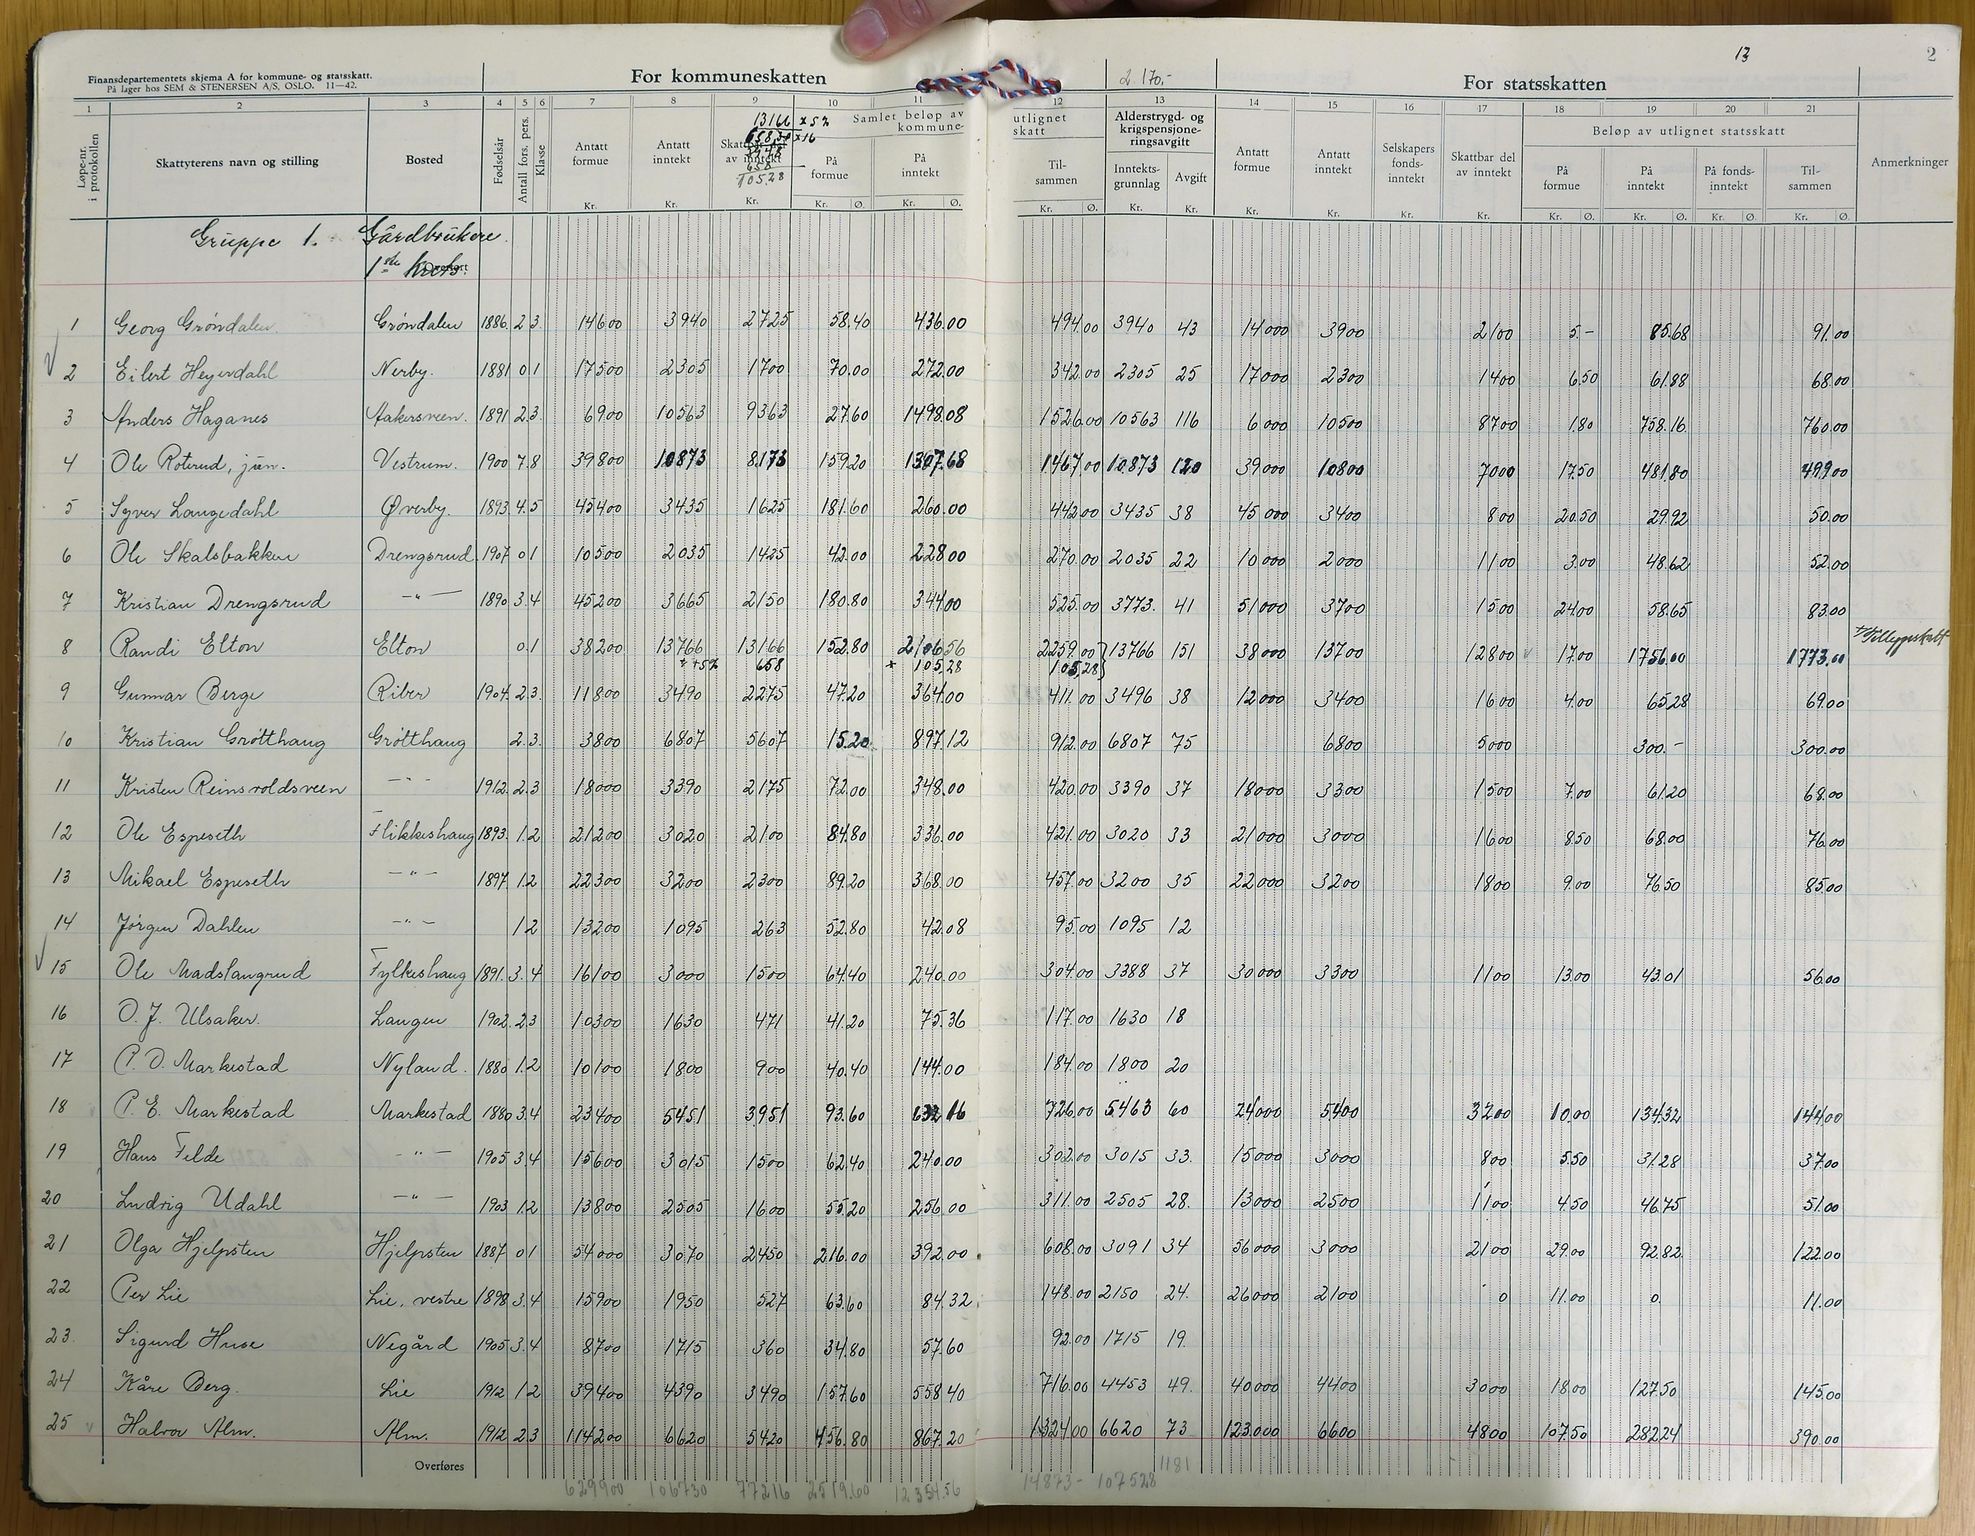 Finansdepartementets skjema A for kommune- og statsskatt.
På lager hos SEM & STENERSEN A/S, OSLO. 11—42.
For kommuneskatten
2 170,-
For statsskatten
13
2
1 2 3 4 5 6 7 8 9 10 11 12 13 14 15 16 17 18 19 20 21
Løpe-nr. i protokollen
Skattyterens navn og stilling
Bosted
Fødselsår
Antall fors. pers.
Klasse
Antatt formue
Antatt inntekt
av inntekt
13166 x 5 %
658.30 x 16
658
105.28
Samlet beløp av kommune-
utlignet skatt
På formue
På inntekt
Til- sammen
Alderstrygd- og krigspensjone- ringsavgitt
Inntekts- grunnlag
Avgift
Antatt formue
Antatt inntekt
Selskapers fonds- inntekt
Skattbar del av inntekt
Beløp av utlignet statsskatt
På formue
På inntekt
På fonds- inntekt
Til- sammen
Anmerkninger
Kr. Kr. Kr. Kr. Ø. Kr. Ø. Kr. Ø. Kr. Kr. Kr. Kr. Kr. Kr. Kr. Ø. Kr. Ø. Kr. Ø. Kr. Ø.
Gruppe 1. Gårdbrukere.
1ste Krets.
1 Georg Grøndalen Grøndalen 1886 2 3 14600 3940 2725 58.40 436.00 494.00 3940 43 14000 3900 2100 5.- 85.68 91.00
2 Eilert Heyerdahl Nerby. 1881 0 1 17500 2305 1700 70.00 272.00 342.00 2305 25 17000 2300 1400 6.50 61.88 68.00
3 Anders Haganes Aakersveen. 1891 2 3 6900 10563 9363 27.60 1498.08 1526.00 10563 116 6000 10500 8700 1.80 758.16 760.00
4 Ole Roterud, jun. Vestrum. 1900 7.8 39800 10873 8173 159.20 1307.68 1467.00 10.873 120 39000 10800 7000 17.50 481.80 499.00
5 Syver Langedahl Øverby. 1893 4.5 45400 3435 1625 181.60 260.00 442.00 3435 38 45000 3400 800 20.50 29.92 50.00
6 Ole Skalsbakken Drengsrud 1907 0 1 10500 2035 1425 42.00 228.00 270.00 2035 22 10000 2000 1100 3.00 48.62 52.00
7 Kristian Drengsrud —"— 1890 3.4 45200 3665 2150 180.80 344.00 525.00 3773. 41 51000 3700 1500 24.00 58.65 83.00
8 Randi Elton Elton 0.1 38200 13766 13166 152.80 2106.56 2259.00 13766 151 38000 13700 12800 17.00 1756.00 1773.00
+5% 658 105.28 105,28
9 Gunnar Berge Riber 1904 2 3. 11800 3490 2275 47.20 364.00 411.00 3496 38 12000 3400 1600 4.00 65.28 69.00
10 Kristian Grøtthaug Grøtthaug 2 3. 3800 6807 5607 15.20 897.12 912.00 6807 75 6800 5000 300.- 300.00
11 Kristen Reinsvoldsveen —"— 1912. 2.3 18000 3390 2175 72.00 348.00 420.00 3390 37 18000 3300 1500 7.00 61.20 68.00
12 Ole Espeseth Flikkeshaug 1893 1.2 21200 3020 2100 84.80 336.00 421.00 3020 33 21000 3000 1600 8.50 68.00 76.00
13 Mikael Espeseth —"— 1897 1.2 22300 3200 2300 89.20 368.00 457.00 3200 35 22000 3200 1800 9.00 76.50 85.00
14 Jørgen Dahlen —"— 1 2 13200 1095 263 52.80 42.08 95.00 1095 12
15 Ole Madslangrud Fylkeshaug 1891. 3.4 16100 3000 1500 64.40 240.00 304.00 3388 37 30000 3300 1100 13.00 43.01 56.00
16 O. J. Ulsaker. Langen 1902 2 3 10300 1630 471 41.20 75.36 117.00 1630 18
17 P. O. Markestad Nyland. 1880 1.2 10100 1800 900 40.40 144.00 184.00 1800 20
18 P. E. Markestad Markestad 1880 3.4 23400 5451 3951 93.60 632.16 726.00 5463 60 24000 5400 3200 10.00 134.32 144.00
19 Hans Felde —"— 1905 3.4 15600 3015 1500 62.40 240.00 302.00 3015 33. 15000 3000 800 5.50 31.28 37.00
20 Ludvig Udahl —"— 1903 1.2 13800 2505 1600 55.20 256.00 311.00 2505 28. 13000 2500 1100 4.50 46.75 51.00
21 Olga Hjelpsten Hjelpsten 1887 0 1 54000 3070 2450 216.00 392.00 608.00 3091 34 56000 3000 2100 29.00 92.82 122.00
22 Per Lie Lie, vestre 1898 3.4 15900 1950 527 63.60 84.32 148.00 2150 24. 26000 2100 0 11.00 0. 11.00
23. Sigurd Huse Negård 1905 3.4 8700 1715 360 34.80 57.60 92.00 1715 19.
24 Kåre Berg. Lie 1912 1 2 39400 4390 3490 157.60 558.40 716.00 4453 49. 40000 4400 3000 18.00 127.50 145.00
25 Halvor Alm. Alm. 1912 2 3 114200 6620 5420 456.80 867.20 1324.00 6620 73 123.000 6600 4800 107.50 282.24 390.00
Overføres
629900 106730 77216 2519.60 12.354.56 14873- 107528 1181